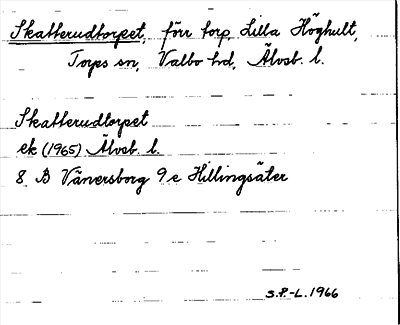 Skatterudtorpet, förr torp, Lilla Höghult,
Torps sn, Valbo hd, Älvsb. l.
Skatterudtorpet
ek (1965) Älvsb. l.
8 B Vänersborg 9 e Hillingsäter
S.P.-L. 1966